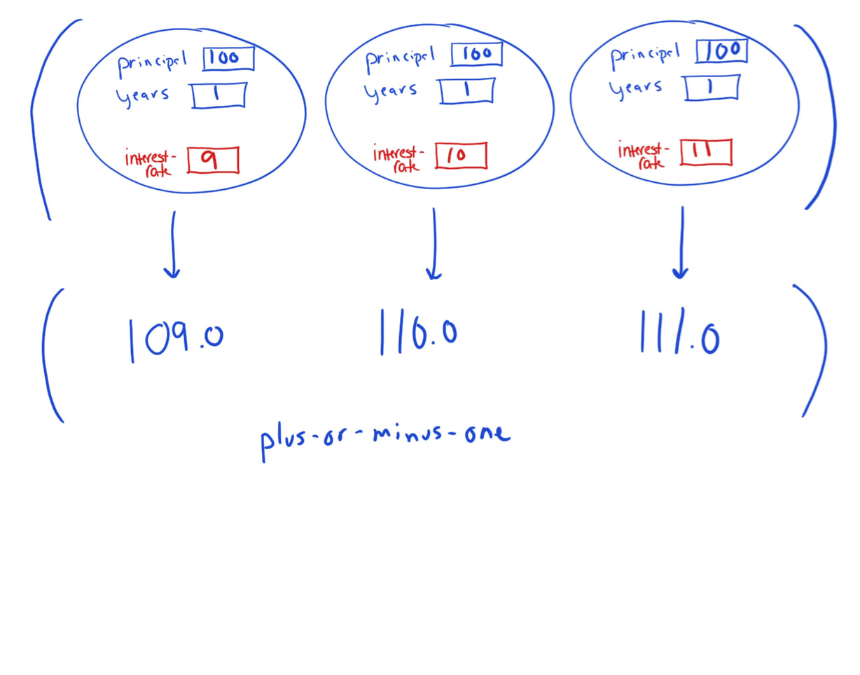 principal 100
years 1
interest-rate 9
principal 100
years 1
interest-rate 10
principal 100
years 1
interest-rate 11
109.0 110.0 111.0
plus-or-minus-one